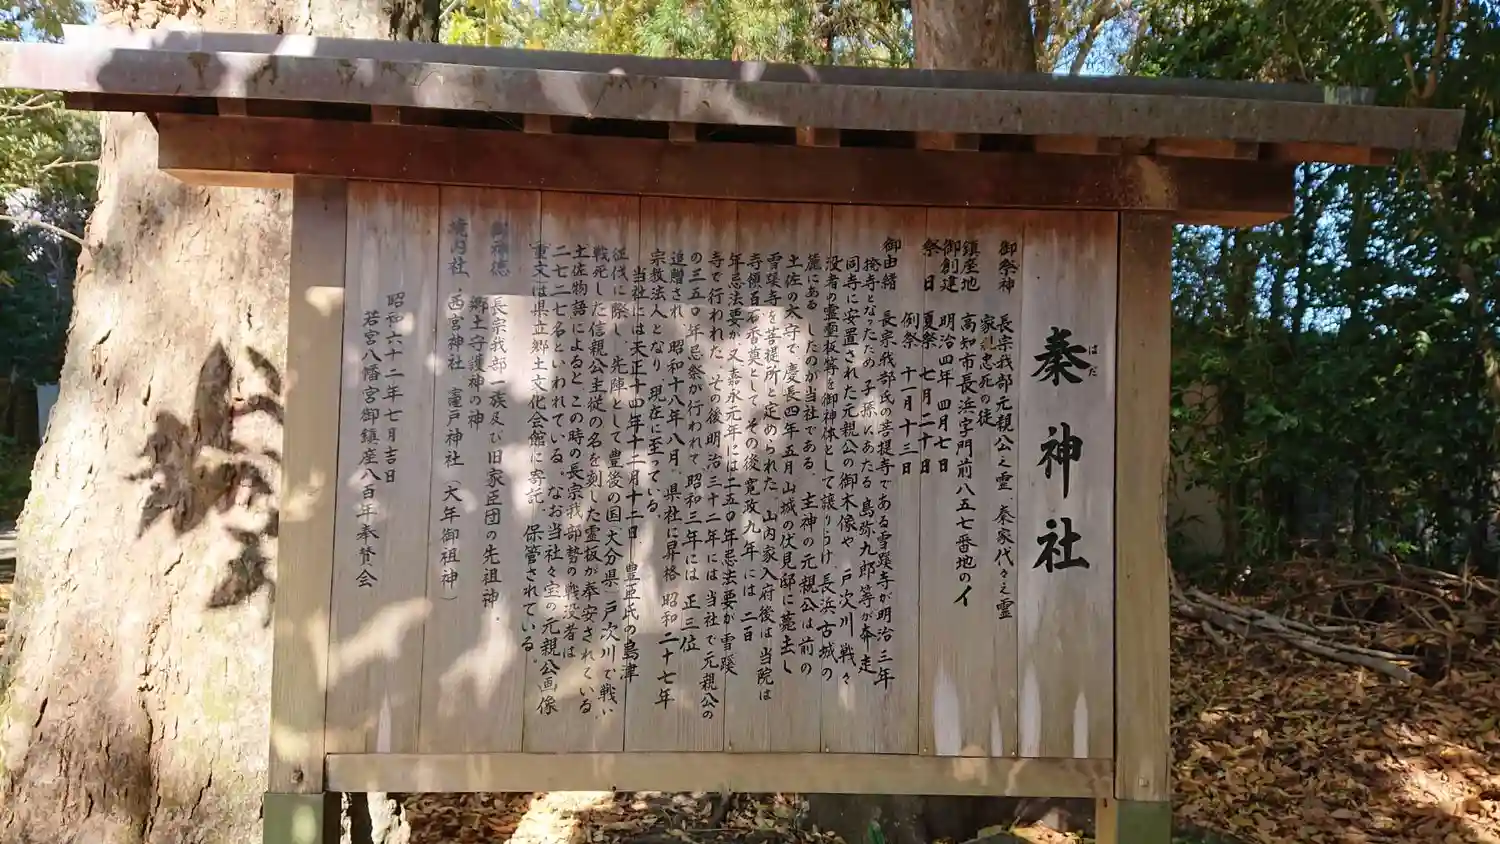 秦神社
はだ
御祭神 長宗我部元親公之霊、秦家代々之霊
家臣忠死の徒
鎮座地 高知市長浜字門前八五七番地のイ
御創建 明治四年四月七日
祭日 夏祭 七月二十日
例祭 十一月十三日
御由緒 長宗我部氏の菩提寺である雪蹊寺が明治三年
廃寺となったため、子孫にあたる島弥九郎等が奔走
同寺に安置された元親公の御木像や、戸次川戦々
没者の霊板等を御神体として譲りうけ、長浜古城の
麓にある したのが当社である。主神の元親公は前の
土佐の太守で、慶長四年五月山城の伏見邸に薨去し
雪蹊寺を菩提所と定められた。山内家入府後は当院は
寺領百石香奠として、その後寛政九年には二百
年忌法要が、又嘉永元年には二五〇年忌法要が雪蹊
寺で行われた。その後明治三十二年には当社で元親公の
の三五〇年忌祭が行われて、昭和三年には正三位
追贈され、昭和十八年八月、県社に昇格 昭和二十七年
宗教法人となり、現在に至っている。
当社には天正十四年十二月十二日、豊臣氏の島津
征伐に際し、先陣として豊後の国(大分県)戸次川で戦い、
戦死した信親公主従の名を刻した霊板が奉安されている
土佐物語によると、この時の長宗我部勢の戦没者は
二七二七名といわれている。なお当社々宝の元親公画像
重文は県立郷土文化会館に寄託、保管されている。
御神徳 長宗我部一族及び旧家臣団の先祖神、
郷土守護神の神
境内社、西宮神社 竃戸神社(大年御祖神)
昭和六十二年七月吉日
若宮八幡宮御鎮座八百年奉賛会